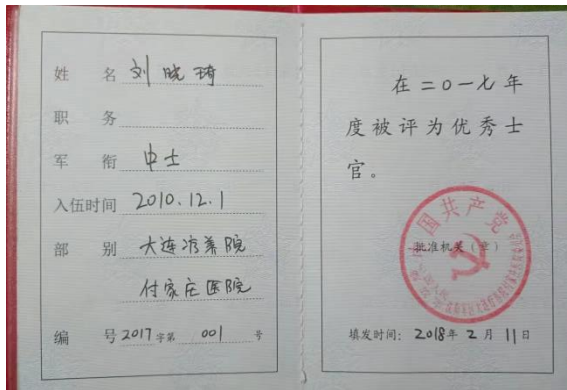 姓 名 刘晓琦
职 务
军 衔 中士
入伍时间 2010.12.1
部 别 大连疗养院
付家庄医院
编 号 2017 字第 001 号
在二〇一七年
度被评为优秀士
官。
中国共产党
批准机关（章）
填发时间：2018年 2 月 11 日